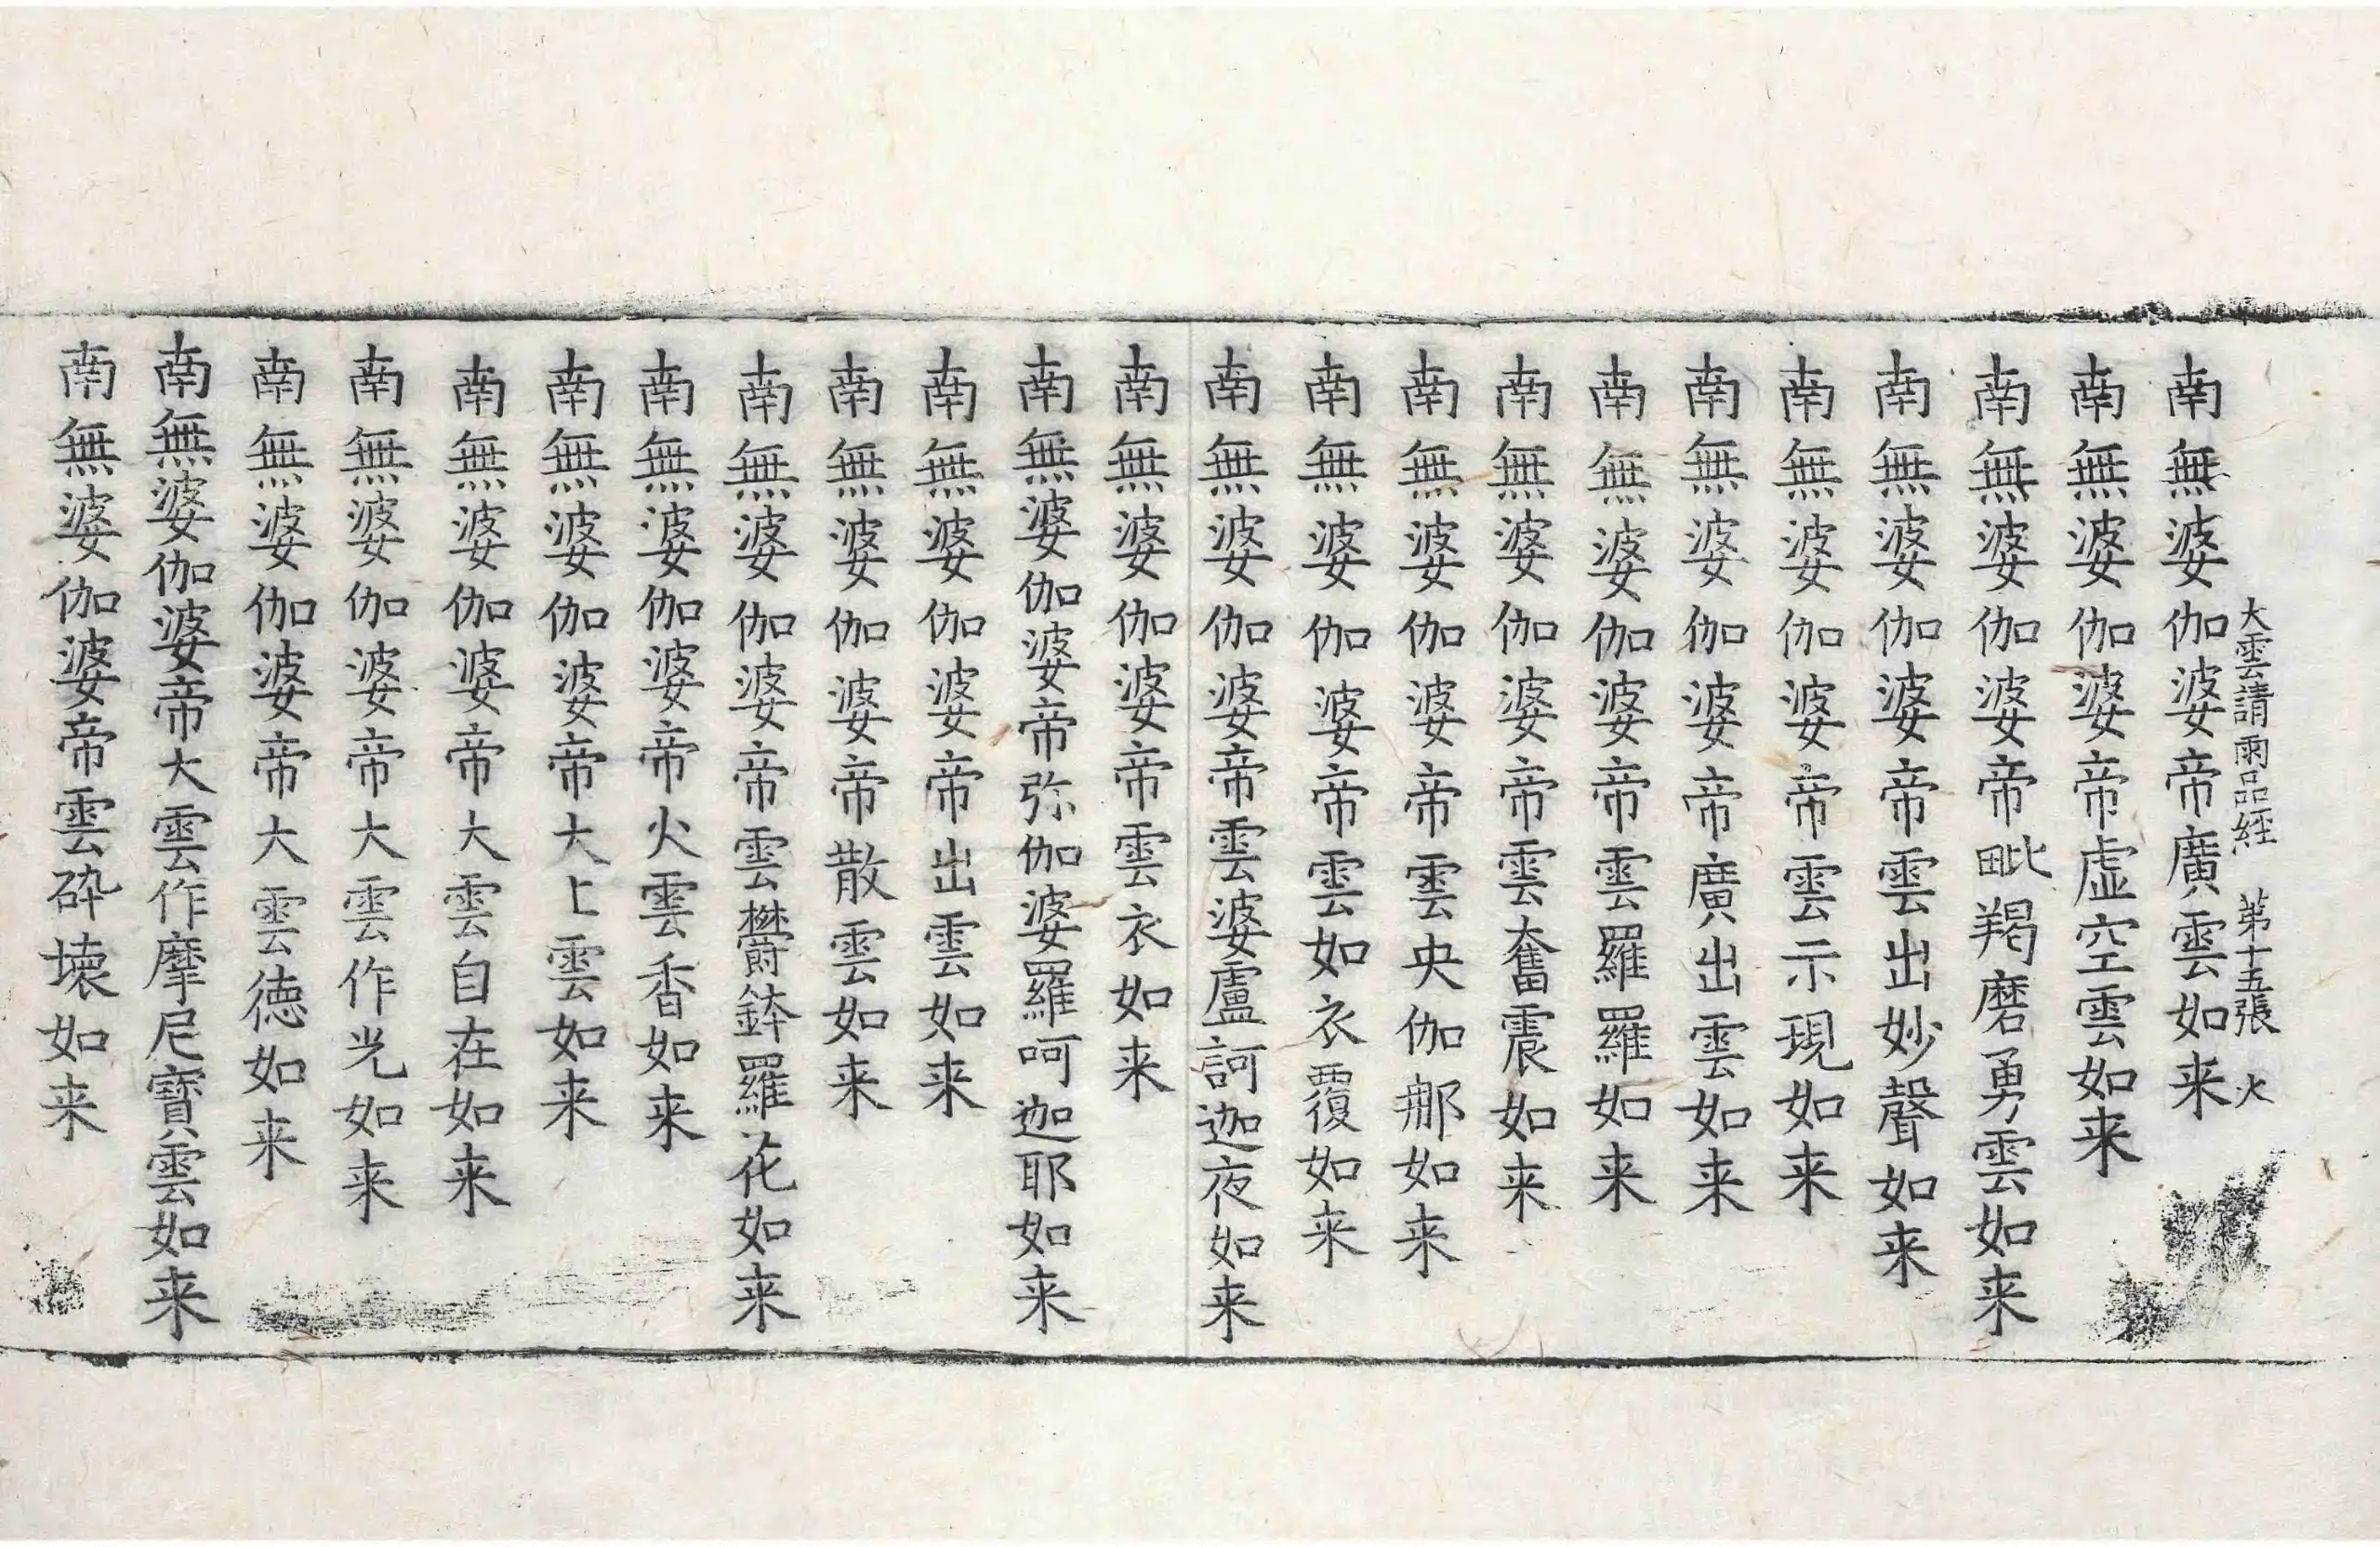 大雲請雨品經 第十五張 火
南無婆伽婆帝廣雲如来
南無婆伽婆帝虛空雲如来
南無婆伽婆帝毗羯磨勇雲如来
南無婆伽婆帝雲出妙聲如来
南無婆伽婆帝雲示現如来
南無婆伽婆帝廣出雲如来
南無婆伽婆帝雲羅羅如来
南無婆伽婆帝雲奮震如来
南無婆伽婆帝雲央伽那如来
南無婆伽婆帝雲如衣覆如来
南無婆伽婆帝雲婆盧訶迦夜如来
南無婆伽婆帝雲衣如来
南無婆伽婆帝弥伽婆羅呵迦耶如来
南無婆伽婆帝出雲如来
南無婆伽婆帝散雲如来
南無婆伽婆帝雲欝鉢羅花如来
南無婆伽婆帝火雲香如来
南無婆伽婆帝大上雲如来
南無婆伽婆帝大雲自在如来
南無婆伽婆帝大雲作光如来
南無婆伽婆帝大雲徳如来
南無婆伽婆帝大雲作摩尼寶雲如来
南無婆伽婆帝雲碎壊如来